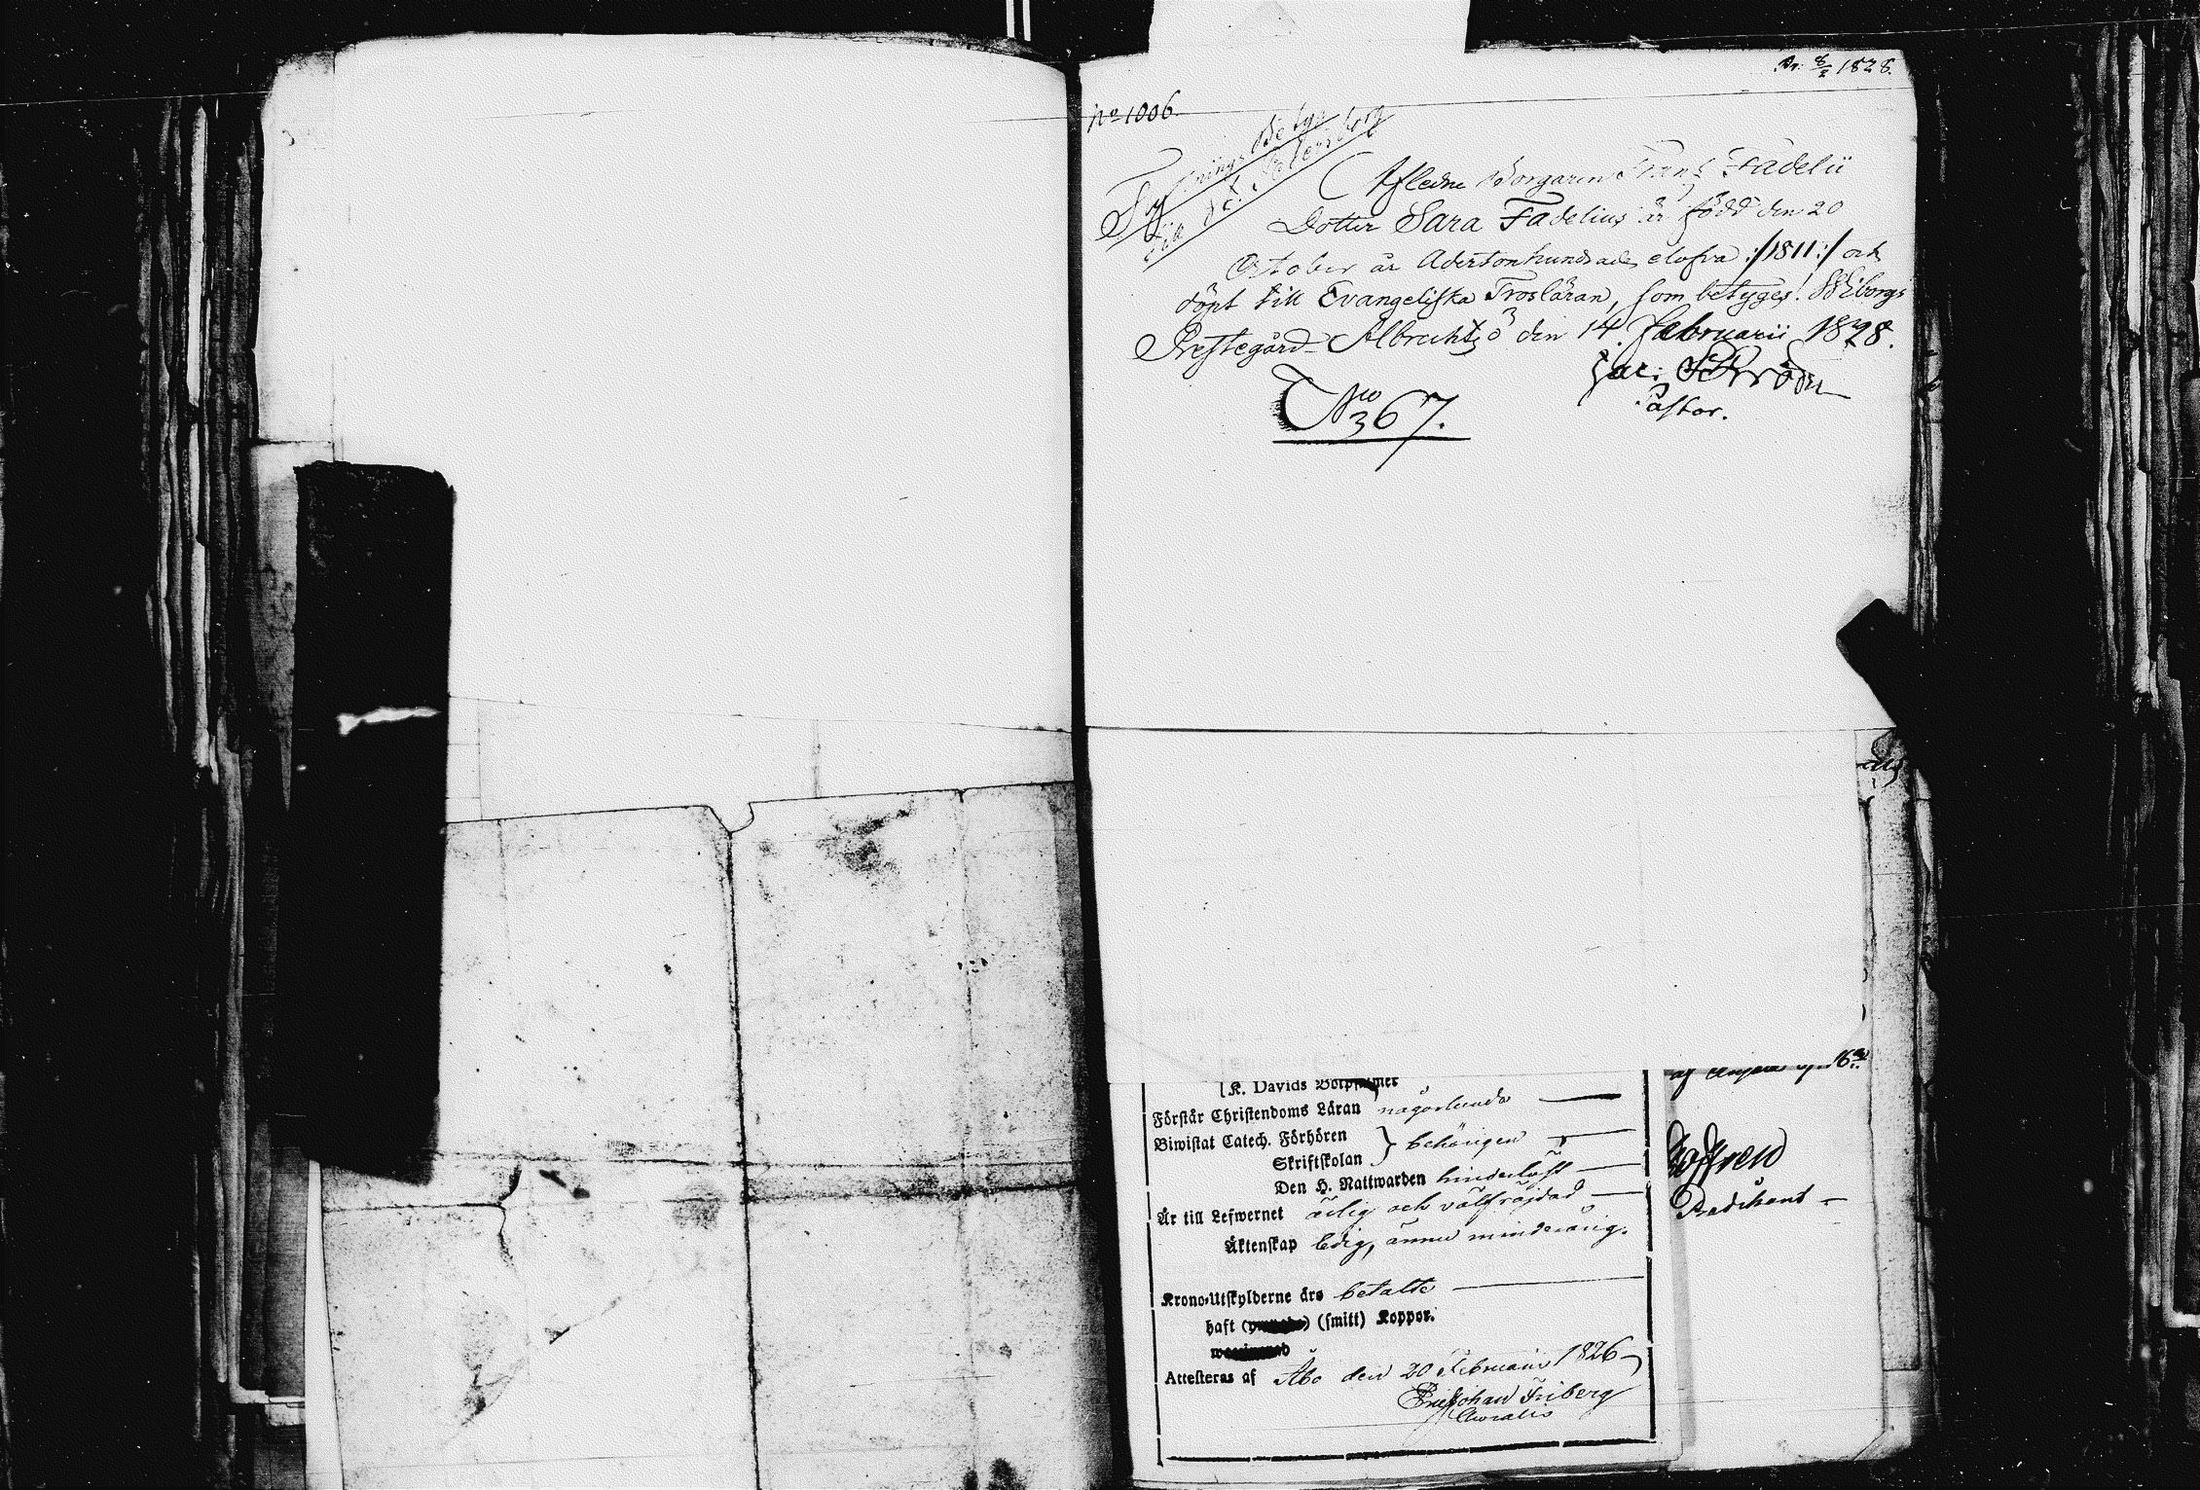 Nº 1006.
8/2 1828.
Afledne Borgaren Frans Fadelii
Dotter Sara Fadelius är född den 20
October år Adertonhundrade elofva :/1811:/ och
döpt till Evangeliska Trosläran, som betyges. Wiborgs
Prestegård Albrechtsö den 14 Februarii 1828.
Jac:
Pastor.
No 367.
K. Davids Botpsalmer
Förstår Christendoms Läran någorlunda
Biwistat Catech. Förhören
behörigen
Skriftskolan
Den H. Nattwarden hinderlöst
Är till Lefwernet ärlig och välfräjdad
Äktenskap ledig, ännu minderårig.
Krono-Utskylderne äro betalte
haft (smitt) Koppor.
Attesteras af Åbo den 20 Februarii 1826
Johan Friberg
af 16
Predikant